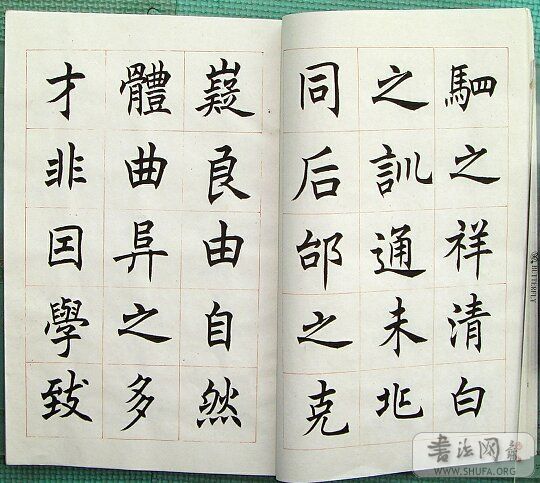 駟之祥清白
之訓通未丱
同后邰之克
嶷良由自然
體曲阜之多
才非囙學致
BUTTERFLY
書法网
WWW.SHUFA.ORG